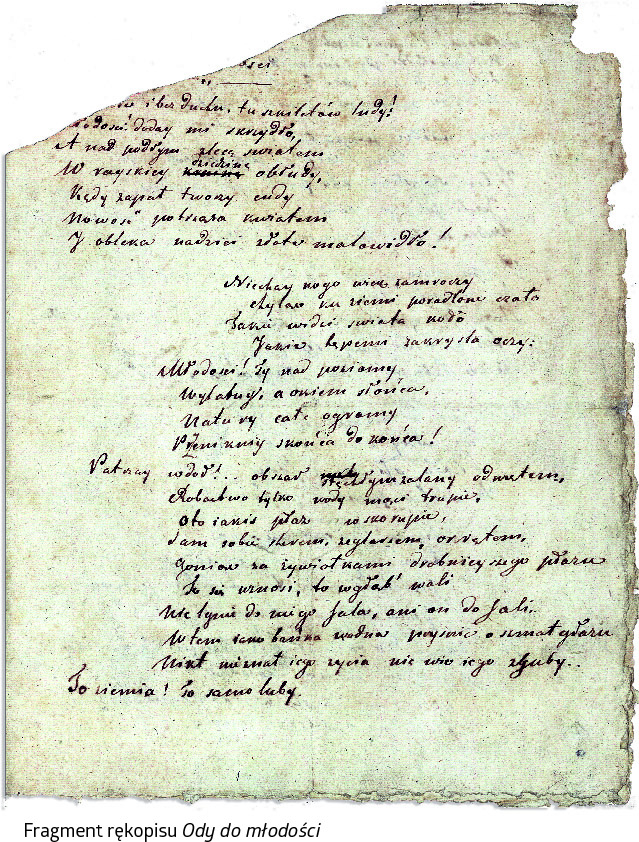 ości
i bez duchu, tu szkieletów ludy!
łodości! doday mi skrzydło,
A nad podłym zlecę światem
W rayskiey dziedzinę obłudy,
Kędy zapał tworzy cudy
Nowość potrząsa kwiatem
I obleka nadziei złote malowidło!
Niechay kogo wiek zamroczy
chyląc ku ziemi poradlone czoło
Takie widzi świata koło
Jakie tępemi zakryśla oczy:
Młodości! Ty nad poziomy
Wylatuy, a okiem słońca,
Natury całe ogromy
Przenikniy z końca do końca!
Patrzay wdół!.. obszar zalany odmętem,
Robactwo tylko wody mąci trupie,
Oto jakiś płaz w skorupie,
Sam sobie sterem, żeglarzem, okrętem,
Goniąc za żywiołkami drobnieyszego płazu
To się wznosi, to wgłąb wali
Nie lgnie do niego fala, ani on do fali..
Wtem jako bańka wodna prysnie o szmat głazu
Nikt nieznał jego życia nie wie jego zguby..
To ziemia! To samoluby.
Fragment rękopisu Ody do młodości